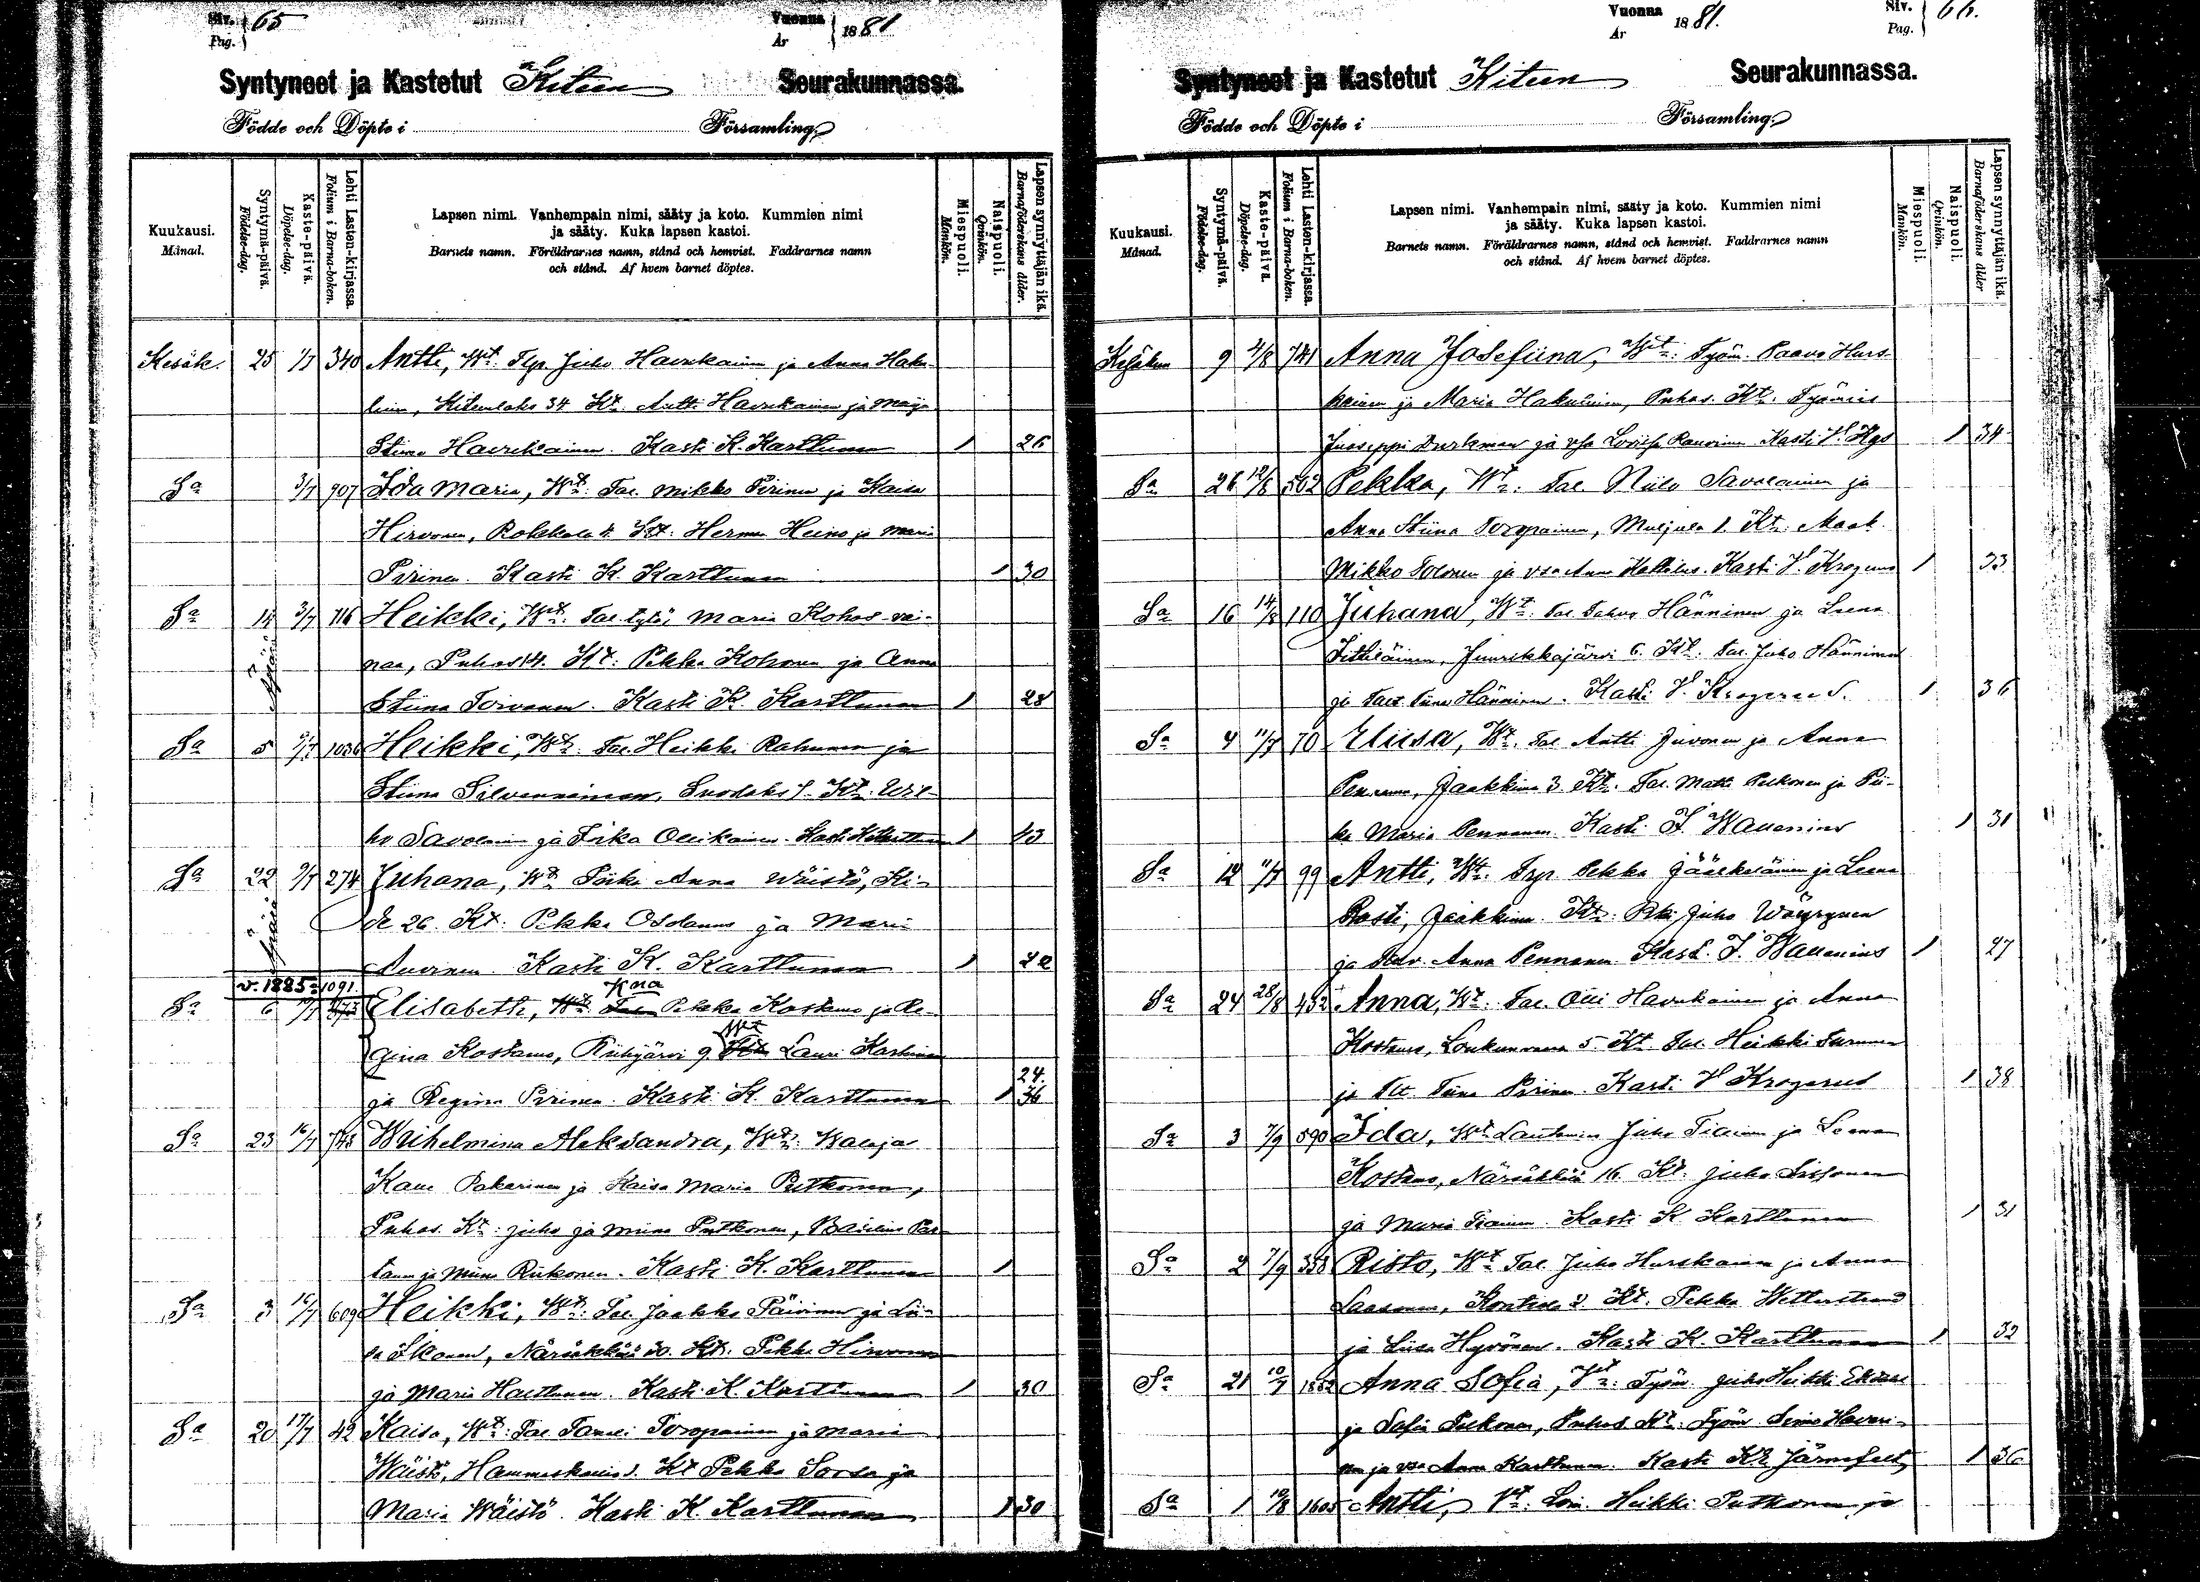 Siv. Pag. 65
Vuonna År 1881
Syntyneet ja Kastetut Kiteen Seurakunnassa.
Födde och Döpte i Församling
Kuukausi. Månad.
Syntymä-päivä. Födelse-dag.
Kaste-päivä. Döpelse-dag.
Lehti Lasten-kirjassa. Folium i Barna-boken.
Lapsen nimi. Vanhempain nimi, sääty ja koto. Kummien nimi
ja sääty. Kuka lapsen kastoi.
Barnets namn. Föräldrarnes namn, stånd och hemvist. Faddrarnes namn
och stånd. Af hvem barnet döptes.
Miespuoli. Mankön.
Naispuoli. Qvinkön.
Lapsen synnyttäjän ikä. Barnaföderskans ålder.
Kesäk. 25 1/7 340 Antti, Wt. Juho Havukainen ja Anna Haku-
linen, Kiteenlaks 34 Kt. Antti Havukainen ja Maija
Stiina Havukainen. Kasti K. Karttunen 1 26
Sa 3/7 907 Ida Maria, Wt: Tal. Mikko Pirinen ja Kaisa
Hirvonen, Rokkala 4. Kt: Herman Heino ja Maria
Pirinen. Kasti K. Karttunen 1 30
Sa 14 3/7 716 Heikki, Wt. Tal. tytö Maria Kohos-vai-
naa, Puhos 14. Kt: Pekka Kohonen ja Anna
Stiina Toivanen. Kasti K. Karttunen 1 28
Sa 5 9/7 1036 Heikki, Wt. Tal. Heikki Rahunen ja
Stiina Silvennoinen, Suorlaks 1. Kt. Wil-
ho Savolainen ja Fika Ollikainen. Kasti K Karttunen 1 43
Sa 22 9/7 274 Juhana, Wt Piika Anna Wäistö, Ki-
de 26. Kt: Pekka Ossianus ja Maria
Auvinen. Kasti K. Karttunen 1 22
v. 1885: 1091. Kna
Sa 6 Elisabeth, Wt Tal Pekka Kostamo ja Re-
gina Kostamo, Riihijärvi 9. Kt Lauri Kostamo
24.
ja Regina Pirinen. Kasti K. Karttunen 1 36
Sa 23 16/7 743 Wilhelmina Aleksandra, Wt: Walaja
Kalle Pakarinen ja Kaisa Maria Putkonen,
Puhos. Kt: Juho ja Miina Putkonen, Basilius Par-
tanen ja Miina Riikonen. Kasti K. Karttunen 1
Sa 3 16/7 609 Heikki, Wt: Tal. Jaakko Päivinen ja Lii-
sa Ikonen, Närsäkkälä 20. Kt. Pekka Hirvonen
ja Maria Karttunen. Kasti K. Karttunen 1 30
Sa 20 17/7 42 Kaisa, Wt: Tal. Taneli Toropainen ja Maria
Wäistö, Hammaskanis. Kt Pekka Sorsa ja
Maria Wäistö. Kasti K. Karttunen 1 30
Vuonna År 1881.
Siv. Pag. 66.
Syntyneet ja Kastetut Kiteen Seurakunnassa.
Födde och Döpte i Församling
Kuukausi. Månad.
Syntymä-päivä. Födelse-dag.
Kaste-päivä. Döpelse-dag.
Lehti Lasten-kirjassa. Folium i Barna-boken.
Lapsen nimi. Vanhempain nimi, sääty ja koto. Kummien nimi
ja sääty. Kuka lapsen kastoi.
Barnets namn. Föräldrarnes namn, stånd och hemvist. Faddrarnes namn
och stånd. Af hvem barnet döptes.
Miespuoli. Mankön.
Naispuoli. Qvinkön.
Lapsen synnyttäjän ikä. Barnaföderskans ålder
9 4/8 741 Anna Josefiina, Wt: Työm. Paavo Hurs-
kainen ja Maria Hakulinen, Puhos. Kt. Työmies
Juoseppi Durkman ja vsa Loviisa Rauvinen Kasti 1 34
Sa 26 12/8 502 Pekka, Wt: Tal. Niilo Savolainen ja
Anna Stiina Toropainen, Muljula 1. Kt: Maak.
Mikko Tolonen ja vsa Anna Hallilus. Kasti V. Krogerus 1 33
Sa 16 14/8 110 Juhana, Wt: Tal. Tahvo Hänninen ja Leena
Juurikkajärvi 6. Kt. Tal. Juho Hänninen
ja Tiina Hänninen. Kasti V. Krogerus. 1 36
Sa 4 11/7 70 Eliisa, Wt. Tal Antti Juvonen ja Anna
Pennanen, Jaakkima 3 Kt. Tal. Matti Pulkonen ja Pii-
ka Maria Pennanen Kasti J. Wallenius 1 31
Sa 12 11/7 99 Antti, Wt. Pekka Jääskeläinen ja Leena
Rosti, Jaakkima. Kt: Juho Wäyrynen
ja Anna Pennanen Kast. J. Wallenius 1 27
Sa 24 28/8 452 Anna, Wt. Tal. Olli Havukainen ja Anna
Kostamo, Loukunvaara 5. Kt Tal. Heikki Turunen
ja Tiina Pirinen. Kasti V Krogerus 1 38
Sa 3 7/9 590 Ida, Wt Lautamies Juho Tiainen ja Leena
Kostamo, Närsäkkälä 16 Kt. Juho Sissonen
ja Maria Tiainen. Kasti K Karttunen 1 31
Sa 2 7/9 358 Risto, Wt Tal. Juho Hurskainen ja Anna
Laasonen, Kontiola 2 Kt. Pekka Wetterstrand
ja Liisa Hyvönen. Kasti K. Karttunen 1 32
Sa 21 Anna Sofia, Wt: Työm Juho Heikki
ja Sofia Pulkonen, Puhos Kt: Työm Simo Havari-
nen ja vsa Anna Karttunen. Kasti Järnefelt, 1 36
Sa 1 10/8 1605 Antti, Wt. Heikki Putkonen ja